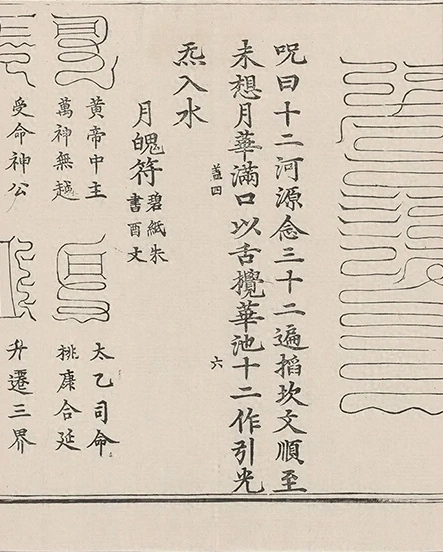 呪曰十二河源念三十二遍搯坎文順至
未想月華滿口以舌攪華池十二作引光
炁入水
蓋四
六
月魄符
碧紙朱
書酉文
黃帝中主
萬神無越
太乙司命
桃康合延
受命神公
升遷三界